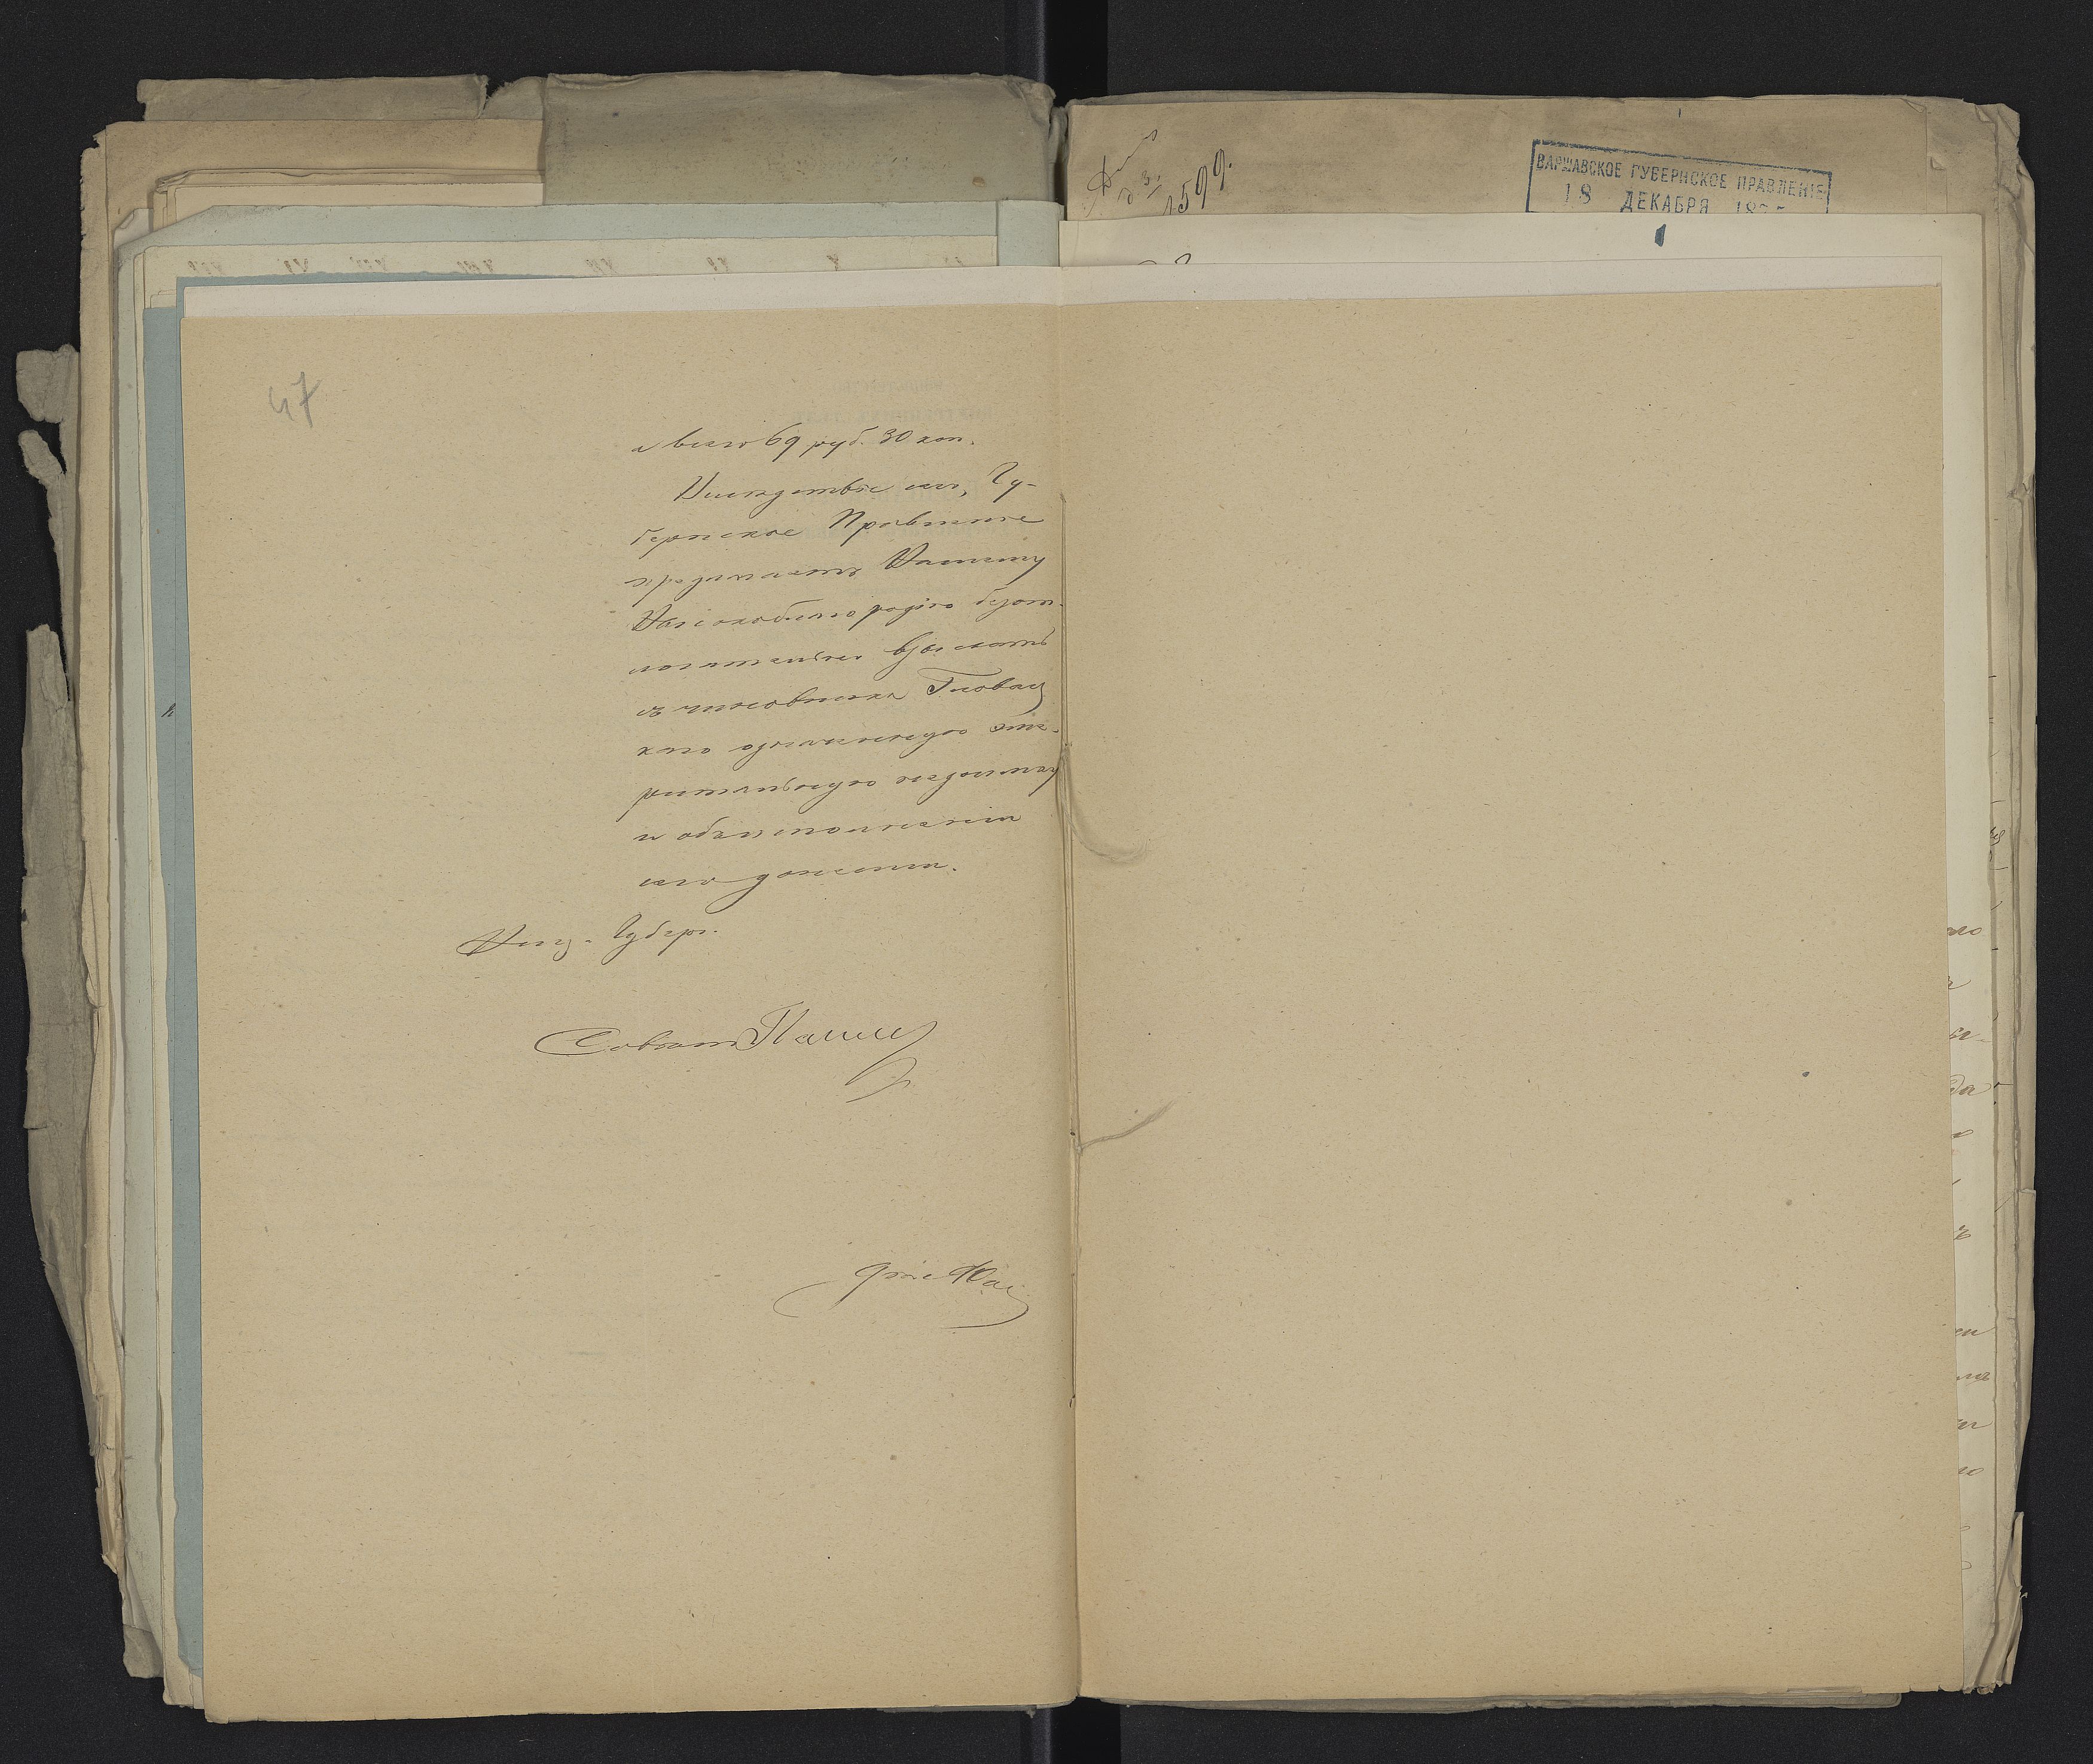 47
а всего 69 руб. 30 коп.
Вследствіе сего, Гу-
бернское Правленіе
предлагаетъ Вашему
Высокоблагородію безот-
лагательно взыскать
съ чиновника Глова
кого означенную эме-
ритальную недоимку
и объ исполненіи
сего донести.
Вице-Губерн.
Совѣтн.
Дѣло
1599.
ВАРШАВСКОЕ ГУБЕРНСКОЕ ПРАВЛЕНІЕ
18 ДЕКАБРЯ